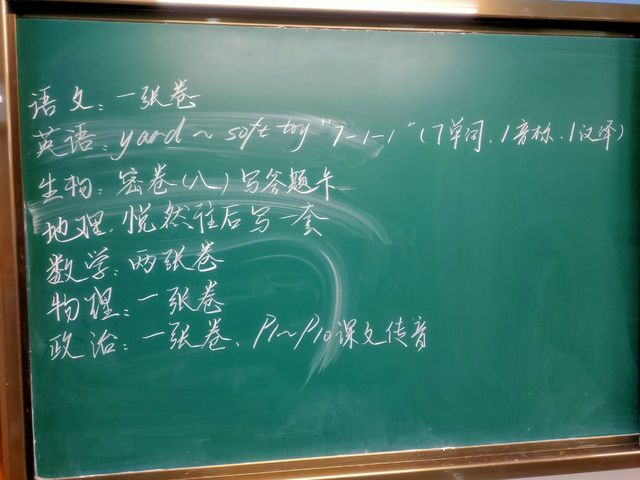 语文：一张卷
英语：yard ~ soft toy "7-1-1"（7单词、1音标、1汉译）
生物：密卷（八）写答题卡
地理：悦然往后写一套
数学：两张卷
物理：一张卷
政治：一张卷、P1~P10课文传音